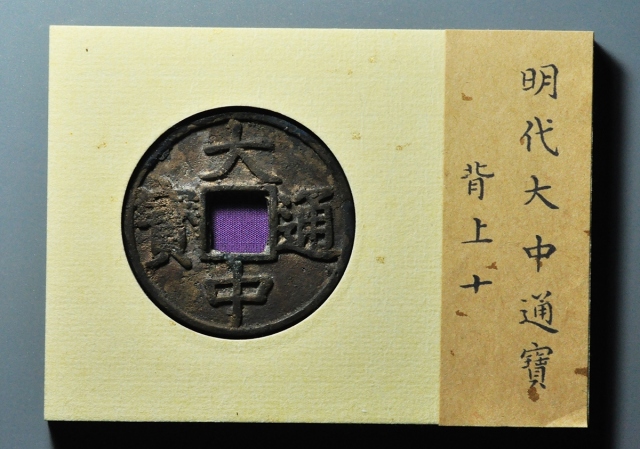 大中通寳
明代大中通寳
背上十